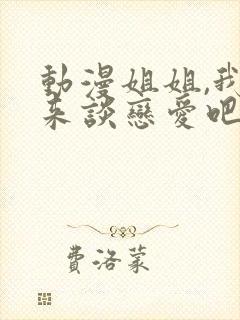 動漫姐姐,我
來談戀愛吧
費洛蒙